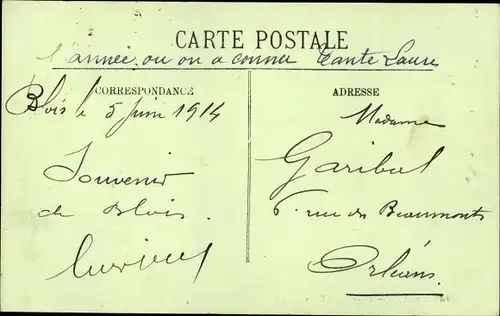 CARTE POSTALE
l'année ou on a connu Tante Laure
CORRESPONDANCE
ADRESSE
Blois le 5 juin 1914
Souvenir
de Blois.
Madame
Garibal
6 rue des Beaumonts
Orléans.